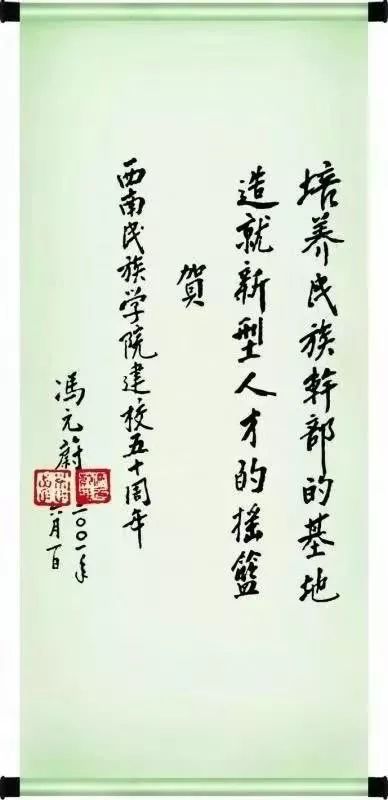 培养民族幹部的基地
造就新型人才的摇籃
賀
西南民族学院建校五十周年
馮元蔚
二〇〇一年
六月一日